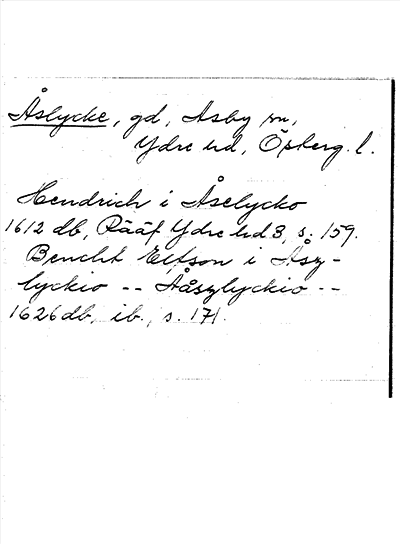 Åslycke, gd, Asby sn,
Ydre hd, Österg. l.
Hendrich i Åselycko
1612 db, Rääf Ydre hd 3, s. 159.
Bencht Eetson i Åsz-
lyckio -- Ååszlyckio --
1626 db, ib., s. 171.